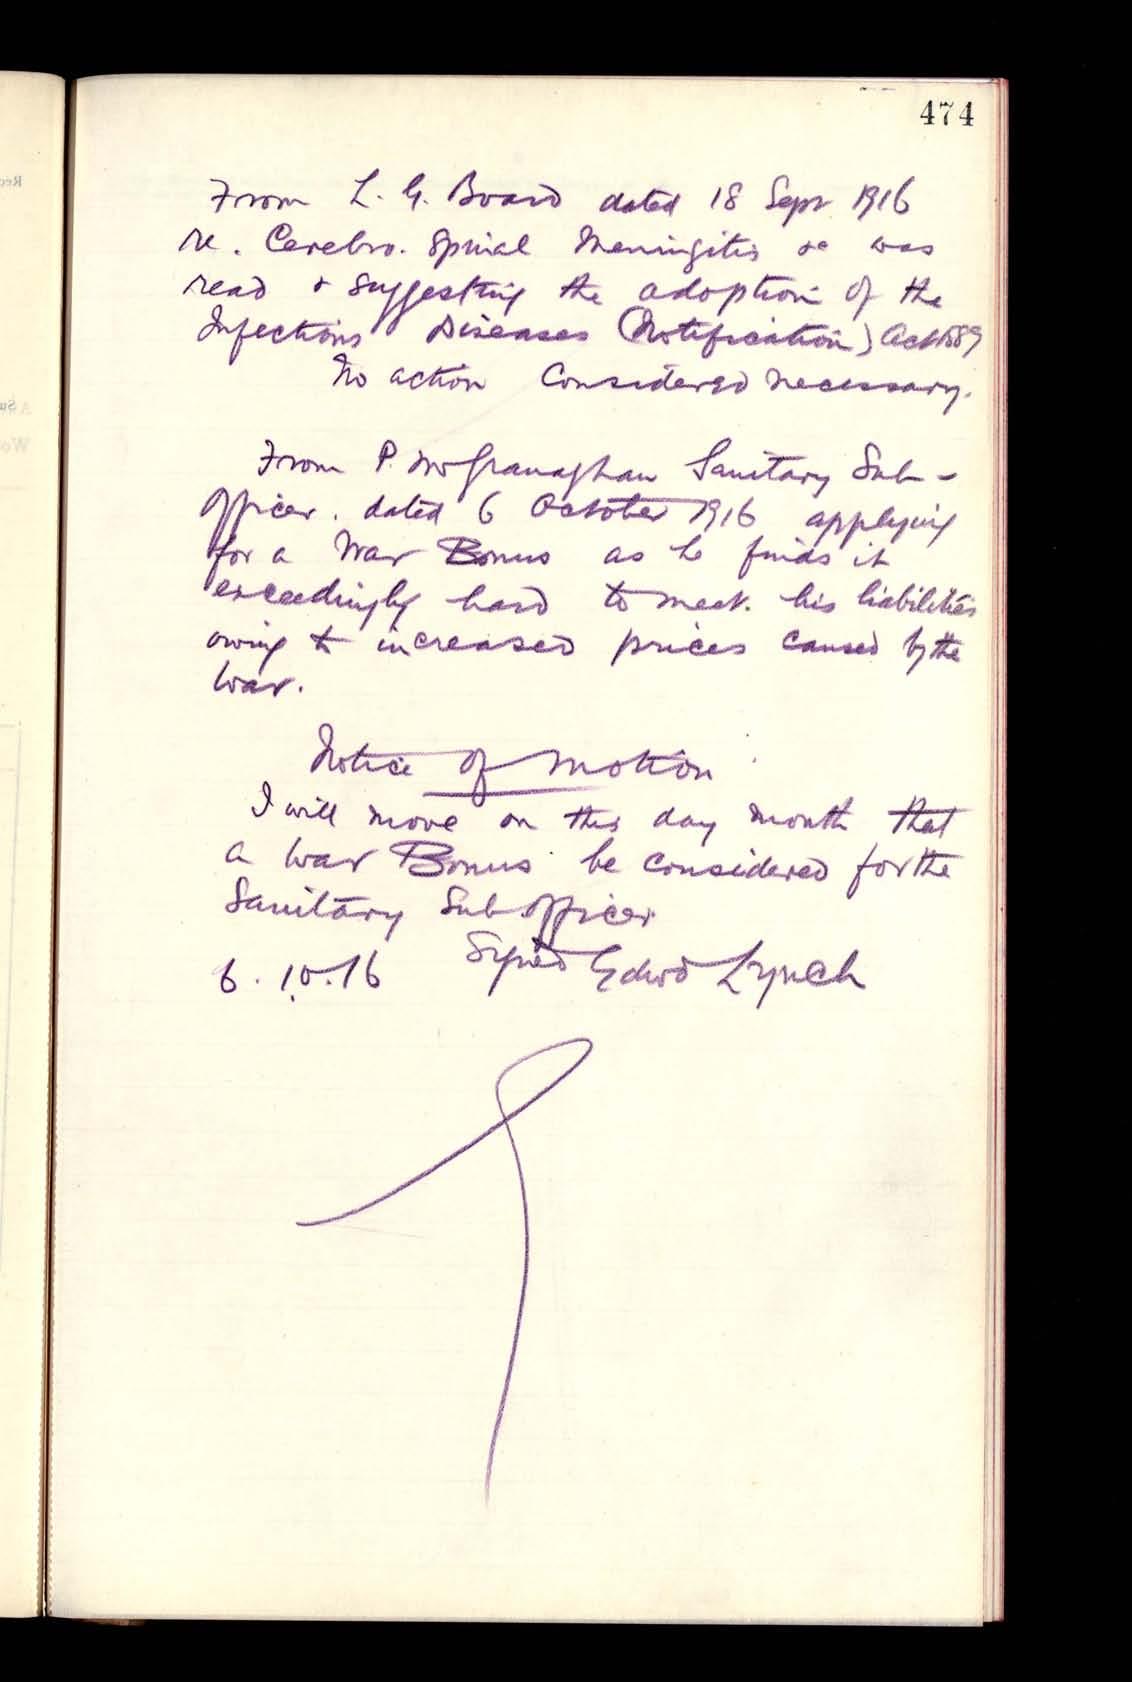 474
From L. G. Board dated 18 Sept 1916
re. Cerebro. Spinal Meningitis &c was
read & suggesting the adoption of the
Infectious Diseases (Notification) Act 1889
No action Considered necessary.
From P. McGranaghan Sanitary Sub-
Officer. dated 6 October 1916 applying
for a War Bonus as he finds it
exceedingly hard to meet. his liabilities
owing to increased prices caused by the
War.
Notice of Motion
I will move on this day month that
a War Bonus be considered for the
Sanitary Sub Officer
6.10.16 Signed Edwd Lynch